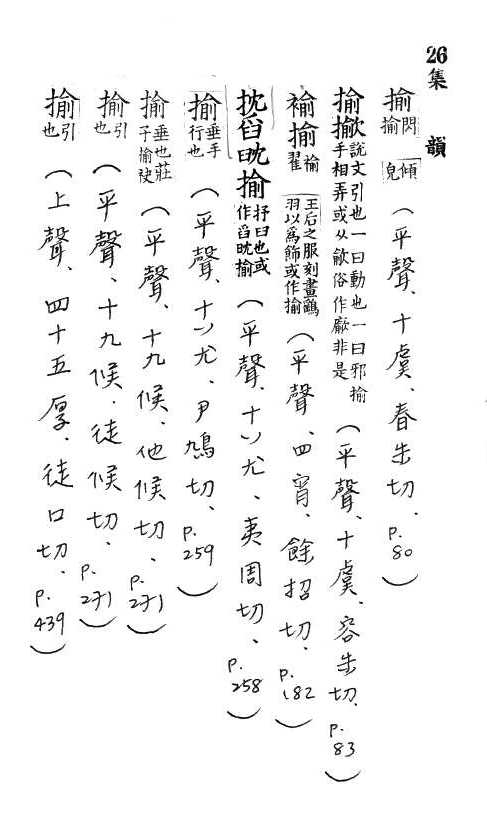 26 集韻
揄 閃揄 傾皃（平聲、十虞、春朱切、P.80）
揄揿 說文引也一曰動也一曰邪揄手相弄或从歈俗作廞非是（平聲、十虞、容朱切、P.83）
褕揄 揄翟王后之服刻畫鷂羽以爲飾或作揄（平聲、四宵、餘招切、P.182）
抭舀㕀揄 抒臼也或作舀㕀揄（平聲、十八尤、夷周切、P.258）
揄 垂手行也（平聲、十八尤、尹鳩切、P.259）
揄 垂也莊子揄袂（平聲、十九侯、他候切、P.271）
揄 引也（平聲、十九侯、徒候切、P.271）
揄 引也（上聲、四十五厚、徒口切、P.439）